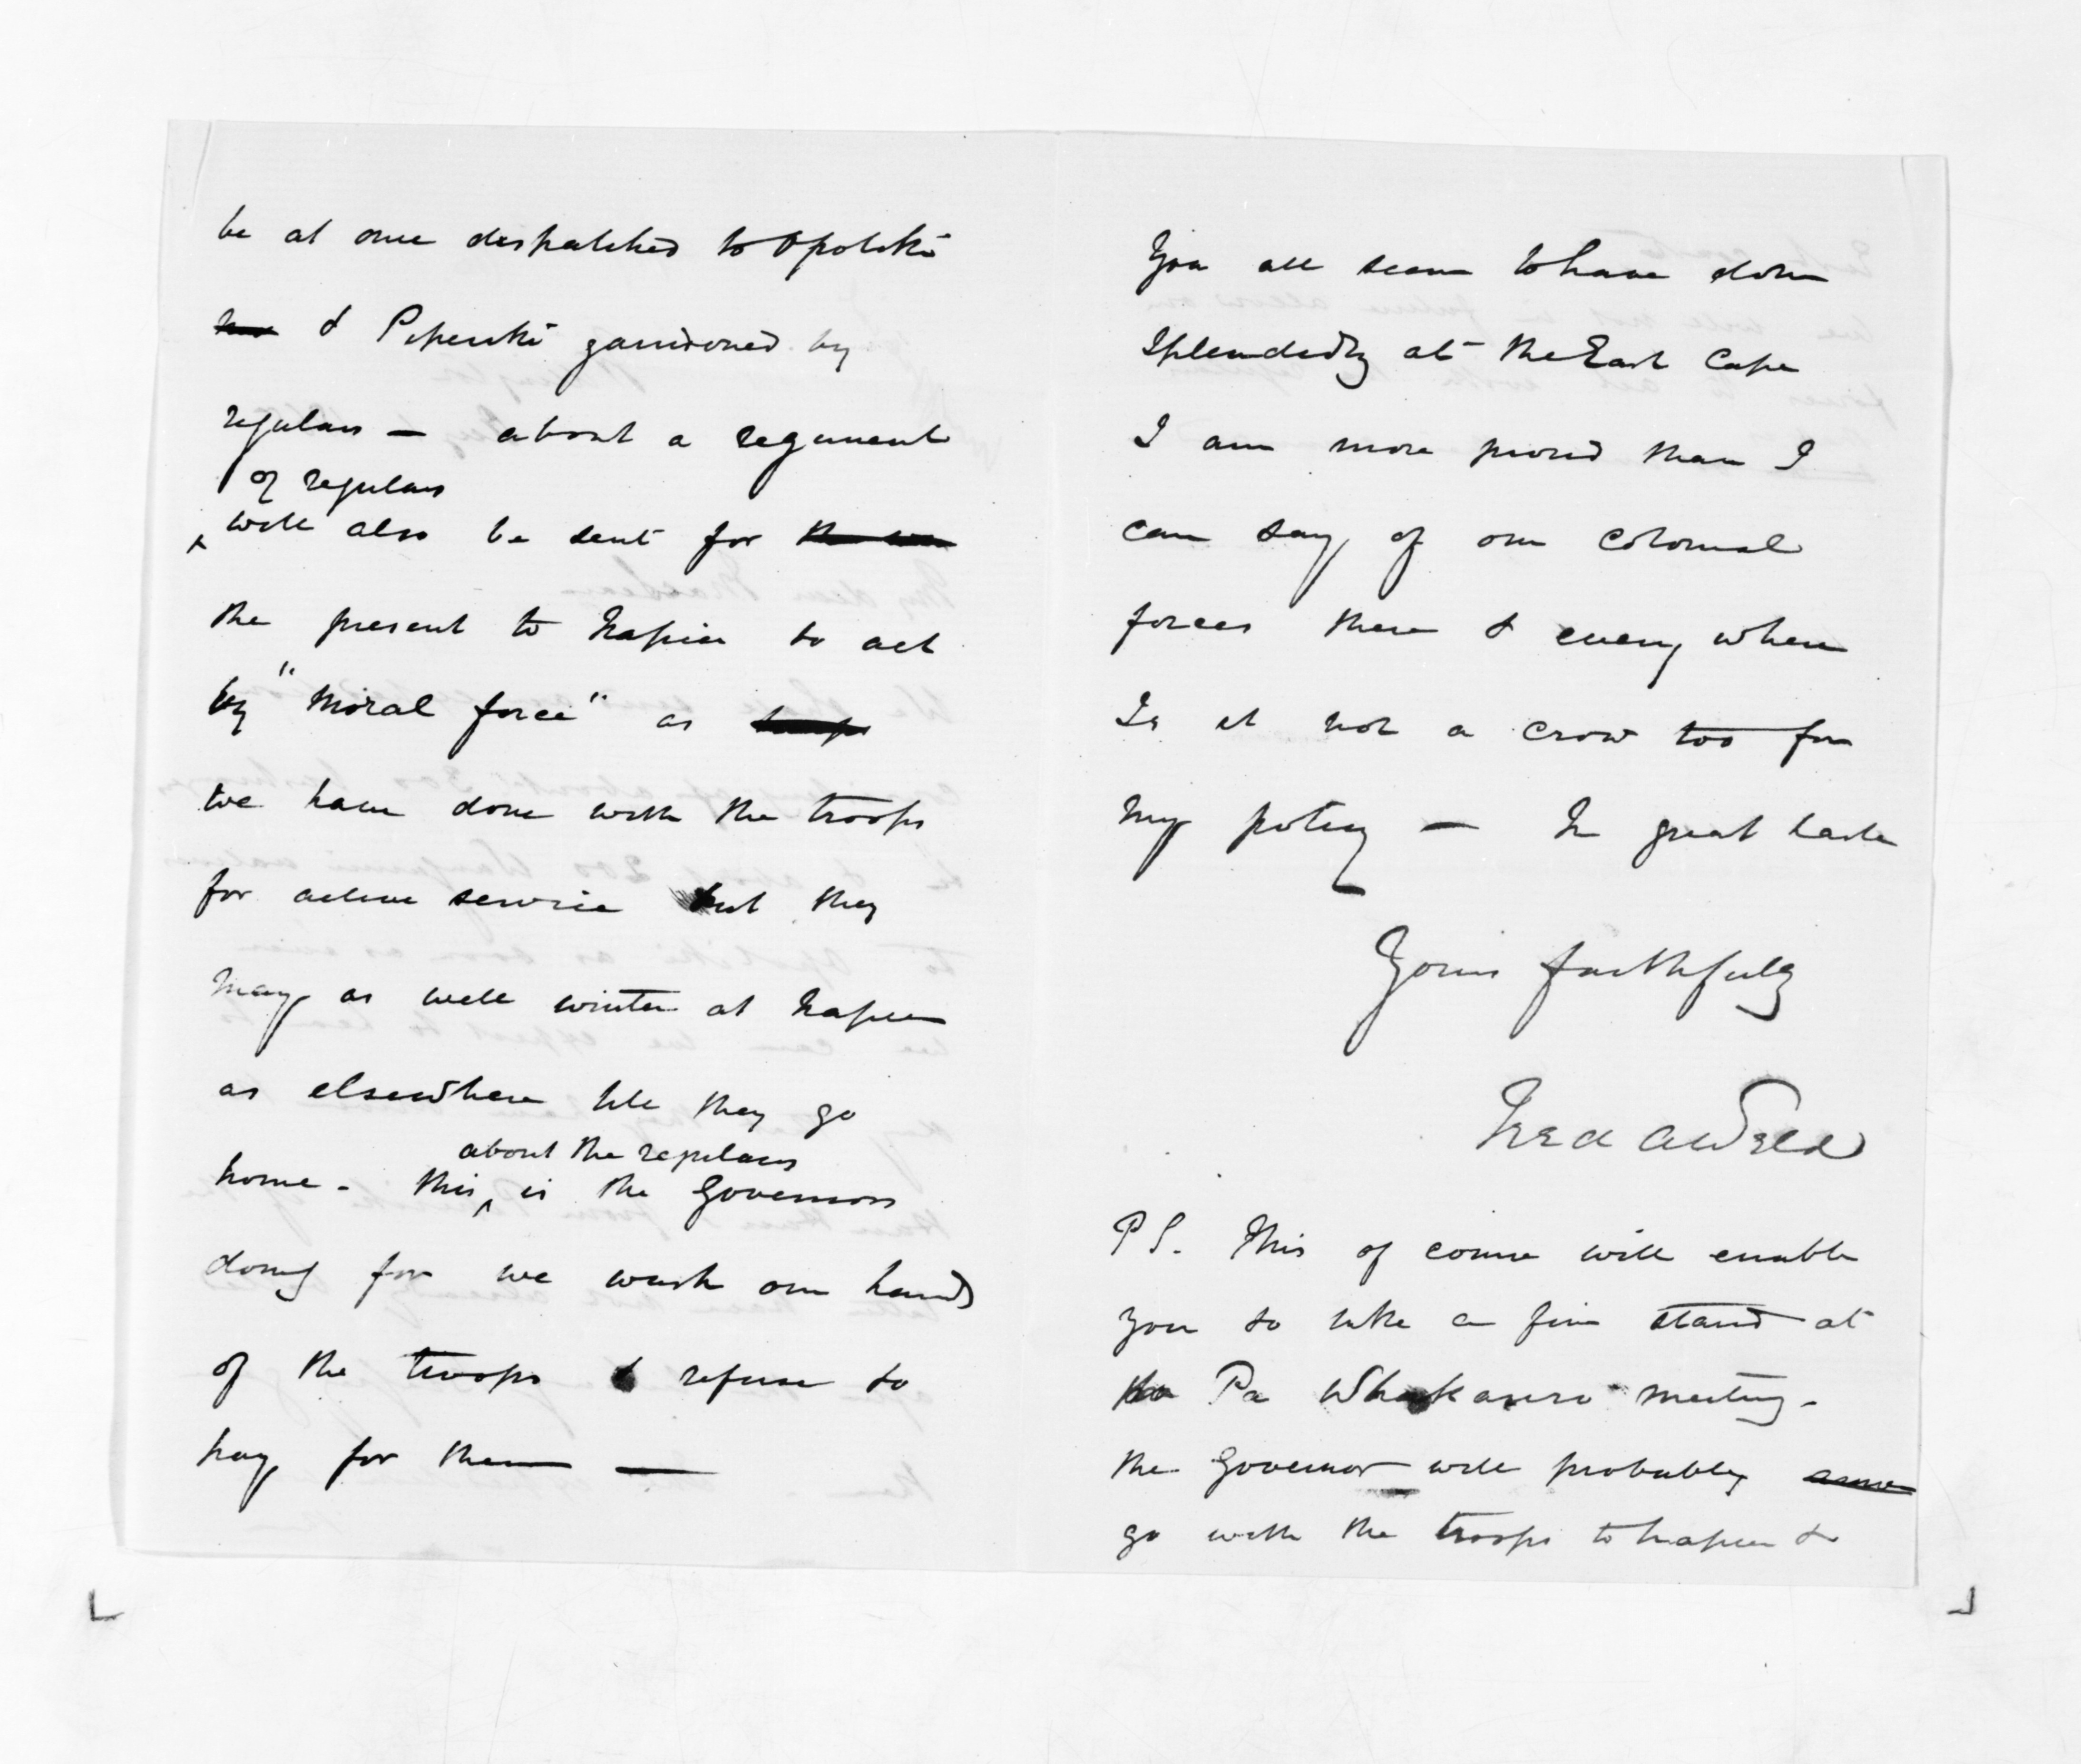 be at once despatched to Opotiki
& Pipiriki garrisoned by
regulars — about a regiment
of regulars
will also be sent for
the present to Napier to act
by "Moral force" as
we have done with the troops
for active service but they
may as well winter at Napier
as elsewhere till they go
about the regulars
home - this is the Governors
doing for we wash our hands
of the troops & refuse to
pay for them —
You all seem to have done
splendidly at the East Cape
I am more proud than I
can say of our Colonial
forces there & every where
Is it not a crow too for
my policy — In great haste
Yours faithfully
Fred A Weld
PS. This of course will enable
you to take a firm stand at
Pa Whakaairo meeting -
the Governor will probably
go with the troops to Napier &